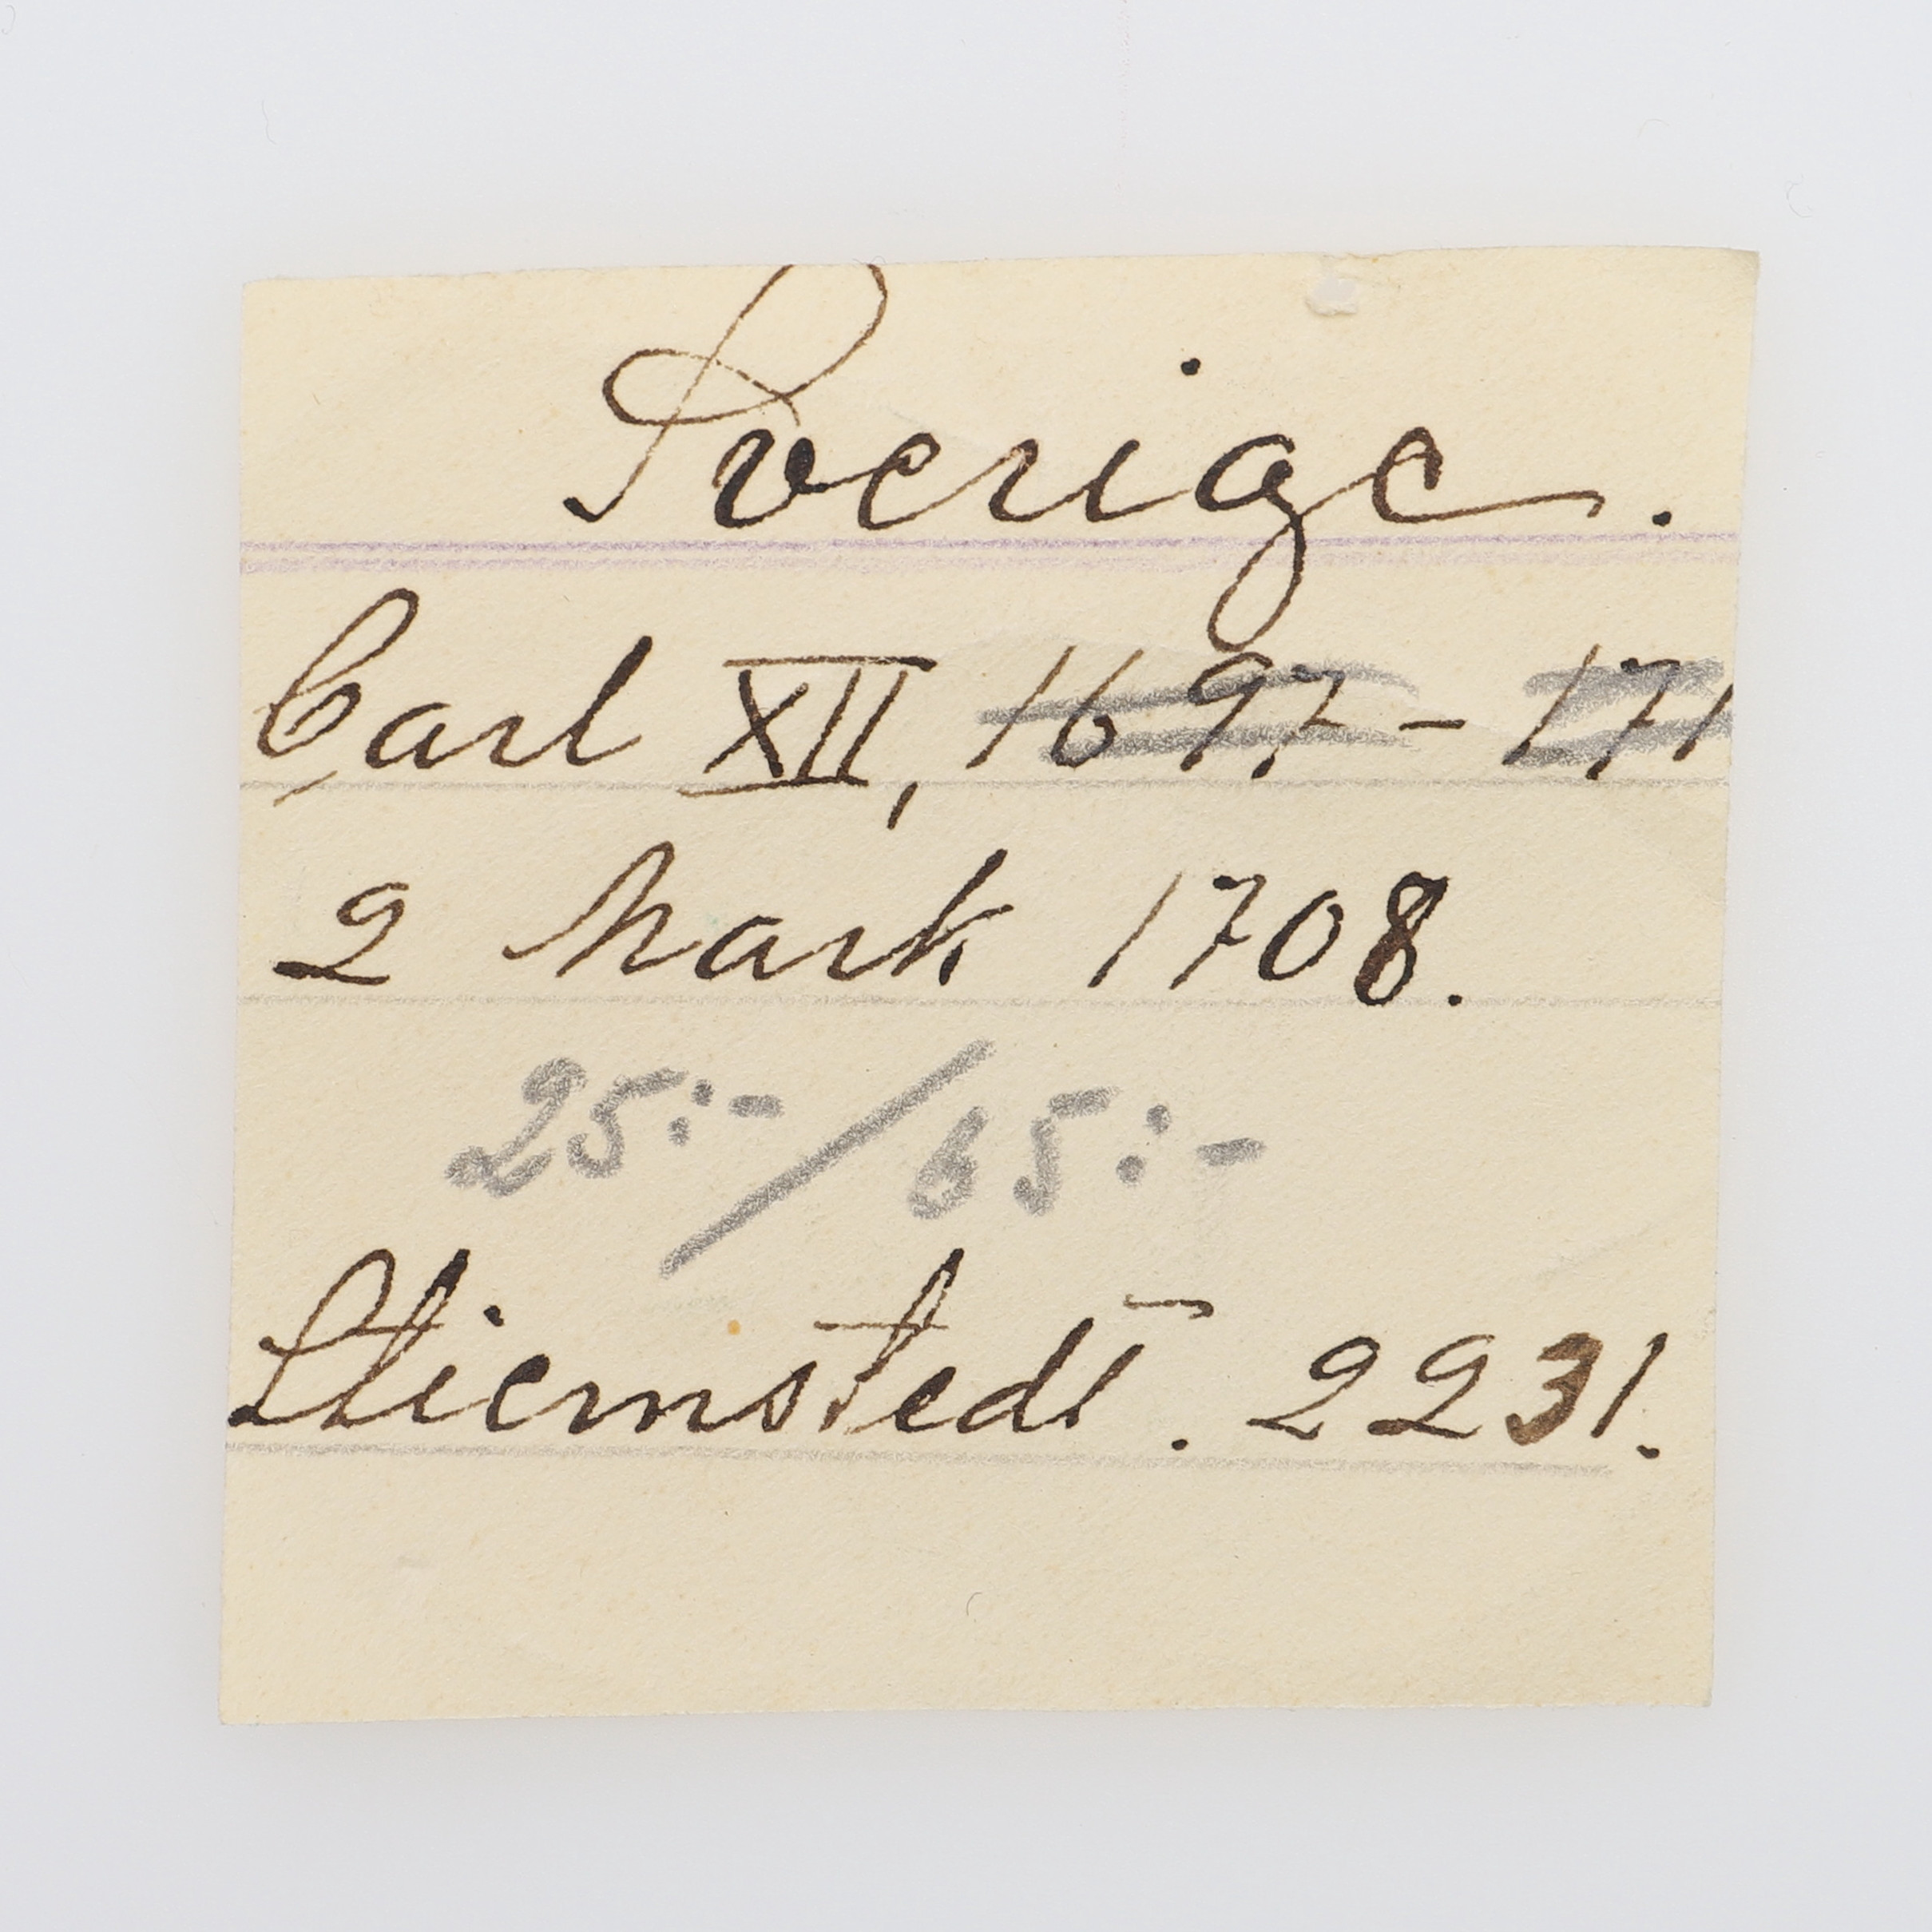 Sverige.
Carl XII, 1697 - 171
2 Mark 1708.
25:- / 65:-
Stiernstedt. 2231.